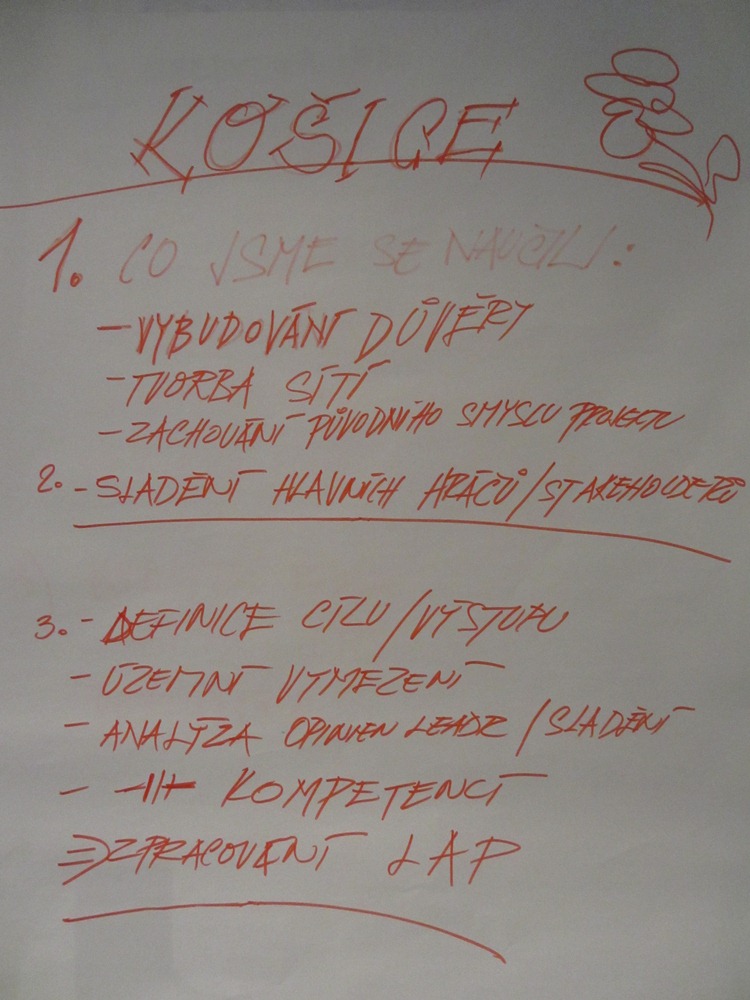 KOŠICE
1. CO JSME SE NAUČILI:
- VYBUDOVÁNÍ DŮVĚRY
- TVORBA SÍTÍ
- ZACHOVÁNÍ PŮVODNÍHO SMYSLU PROJEKTU
2. - SLADĚNÍ HLAVNÍCH HRÁČŮ/STAKEHOLDERŮ
3. - DEFINICE CÍLU/VÝSTUPU
- ÚZEMNÍ VYMEZENÍ
- ANALÝZA OPINIEN LEADR/SLADĚNÍ
- -||- KOMPETENCÍ
⇒ ZPRACOVÁNÍ LAP